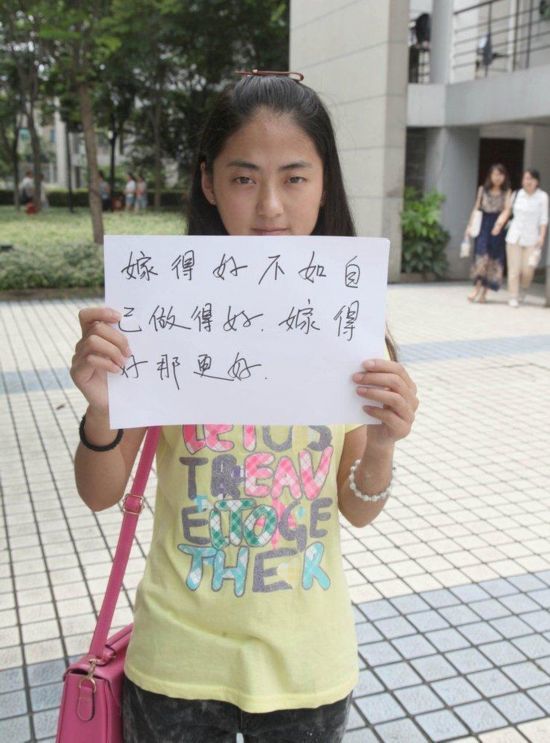 嫁得好不如自
己做得好.嫁得
好那更好.
LET US
TREAV
ELTOGE
THER